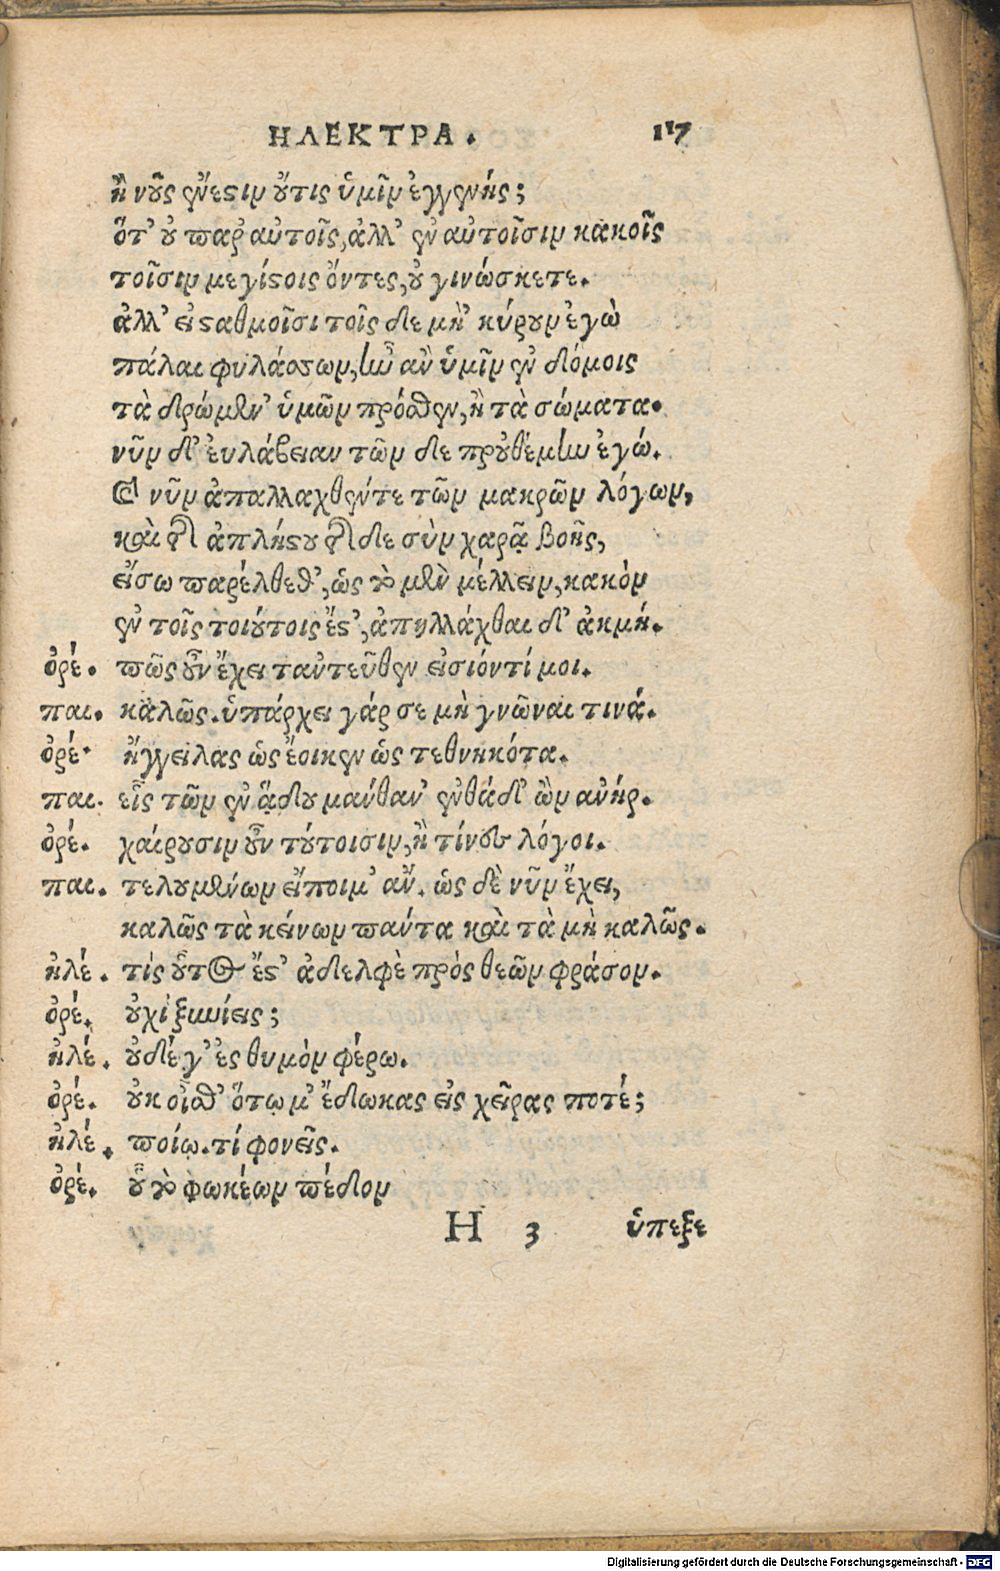 ΗΛΕΚΤΡΑ. 117
ἢ νοῦς ἔνεστιν οὔτις ὑμῖν ἐγγενής;
ὅτ' οὐ παρ' αὐτοῖς, ἀλλ' ἐν αὐτοῖσιν κακοῖς
τοῖσιν μεγίστοις ὄντες, οὐ γινώσκετε.
ἀλλ' εἰ σταθμοῖσι τοῖς δε μὴ 'κύρουν ἐγὼ
πάλαι φυλάσσων, ἦν ἂν ὑμῖν ἐν δόμοις
τὰ δρώμεν' ὑμῶν πρόσθεν, ἢ τὰ σώματα.
νῦν δ' εὐλάβειαν τῶν δε προὐθέμην ἐγώ.
καὶ νῦν ἀπαλλαχθέντε τῶν μακρῶν λόγων,
καὶ τῆς ἀπλήστου τῆς δε σὺν χαρᾷ βοῆς,
εἴσω παρέλθεθ', ὡς τὸ μὲν μέλλειν, κακὸν
ἐν τοῖς τοιούτοις ἔστ', ἀπηλλάχθαι δ' ἀκμή.
ὀρέ. πῶς οὖν ἔχει ταὐτεῦθεν εἰσιόντί μοι.
παι. καλῶς. ὑπάρχει γάρ σε μὴ γνῶναι τινά.
ὀρέ. ἤγγειλας ὡς ἔοικεν ὡς τεθνηκότα.
παι. εἷς τῶν ἐν ᾅδου μάνθαν' ἐνθάδ' ὢν ἀνήρ.
ὀρέ. χαίρουσιν οὖν τούτοισιν, ἢ τίνες λόγοι.
παι. τελουμένων εἴποιμ' ἄν. ὡς δὲ νῦν ἔχει,
καλῶς τὰ κείνων πάντα καὶ τὰ μὴ καλῶς.
ἠλέ. τίς οὗτος ἔστ' ἀδελφὲ πρὸς θεῶν φράσον.
ὀρέ. οὐχὶ ξυνίεις;
ἠλέ. οὐδέ γ' ἐς θυμὸν φέρω.
ὀρέ. οὐκ οἶσθ' ὅτῳ μ' ἔδωκας εἰς χεῖρας ποτέ;
ἠλέ. ποίῳ. τί φονεῖς.
ὀρέ. οὗ τὸ φωκέων πέδον
Η 3 ὑπεξε
Digitalisierung gefördert durch die Deutsche Forschungsgemeinschaft - DFG